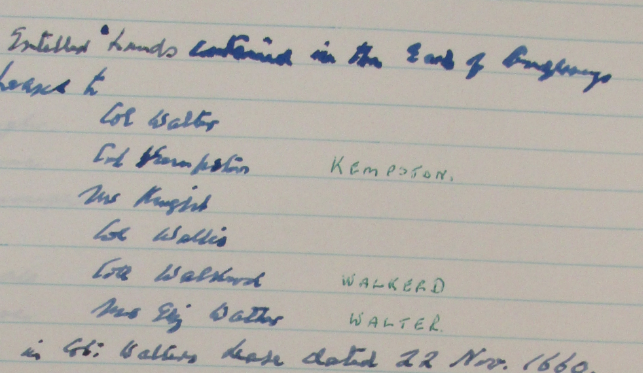 Entitled "Lands contained in the Earl of
Lease to
Col Walter
Col Kempston KEMPSTON.
Mr Knight
Col Wallis
Col WALKERD
Mrs Eliz Walter WALTER.
in Col: Walters lease dated 22 Nov. 1660.